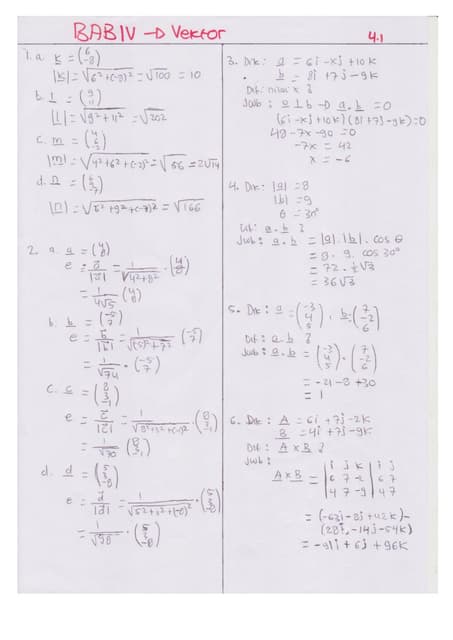 BAB IV → Vektor
4.1
1. a. k = (6 -8)
|k| = √6²+(-8)² = √100 = 10
b. l = (9 11)
|l| = √9²+11² = √202
c. m = (4 6 -2)
|m| = √4²+6²+(-2)² = √56 = 2√14
d. n = (6 9 -7)
|n| = √6²+9²+(-7)² = √166
2. a. a = (4 8)
e = a/|a| = 1/√4²+8² · (4 8)
= 1/4√5 (4 8)
b. b = (-5 7)
e = b/|b| = 1/√(-5)²+7² (-5 7)
= 1/√74 · (-5 7)
c. c =
e = c/|c|
= 1/√70
d. d =
e = d/|d|
= 1/√98 ·
3. Dik: a = 6i - xj + 10k
b = 8i + 7j - 9k
Dit: nilai x ?
Jwb: a ⊥ b → a . b = 0
(6i - xj + 10k) (8i + 7j - 9k) = 0
48 - 7x - 90 = 0
-7x = 42
x = -6
4. Dik: |a| = 8
|b| = 9
θ = 30°
Dit: a . b ?
Jwb: a . b = |a| . |b| . cos θ
= 8 . 9 . cos 30°
= 72 . ½√3
= 36√3
5. Dik: a = (-3 4 5) , b = (7 -2 6)
Dit: a . b ?
Jwb: a . b = (-3 4 5) · (7 -2 6)
= -21 - 8 + 30
= 1
6. Dik: A = 6i + 7j - 2k
B = 4i + 7j - 9k
Dit: A x B ?
Jwb:
A x B = | i j k | i j
6 7 -2 | 6 7
4 7 -9 | 4 7
= (-63i - 8j + 42k) -
(28i, -14j - 54k)
= -91i + 6j + 96k